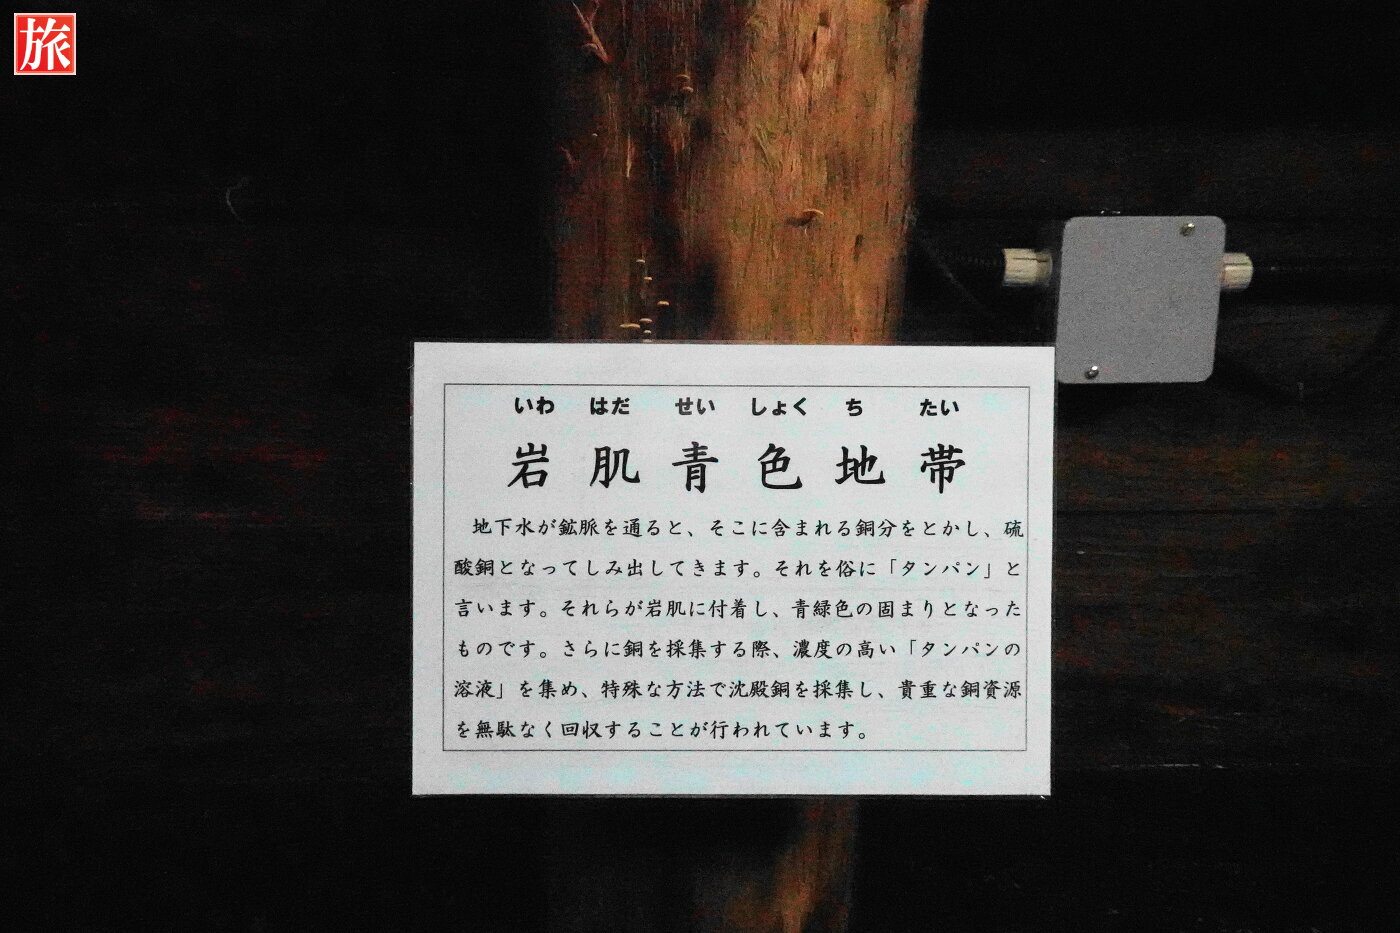 旅
いわ はだ せい しょく ち たい
岩肌青色地帯
地下水が鉱脈を通ると、そこに含まれる銅分をとかし、硫
酸銅となってしみ出してきます。それを俗に「タンパン」と
言います。それらが岩肌に付着し、青緑色の固まりとなった
ものです。さらに銅を採集する際、濃度の高い「タンパンの
溶液」を集め、特殊な方法で沈殿銅を採集し、貴重な銅資源
を無駄なく回収することが行われています。